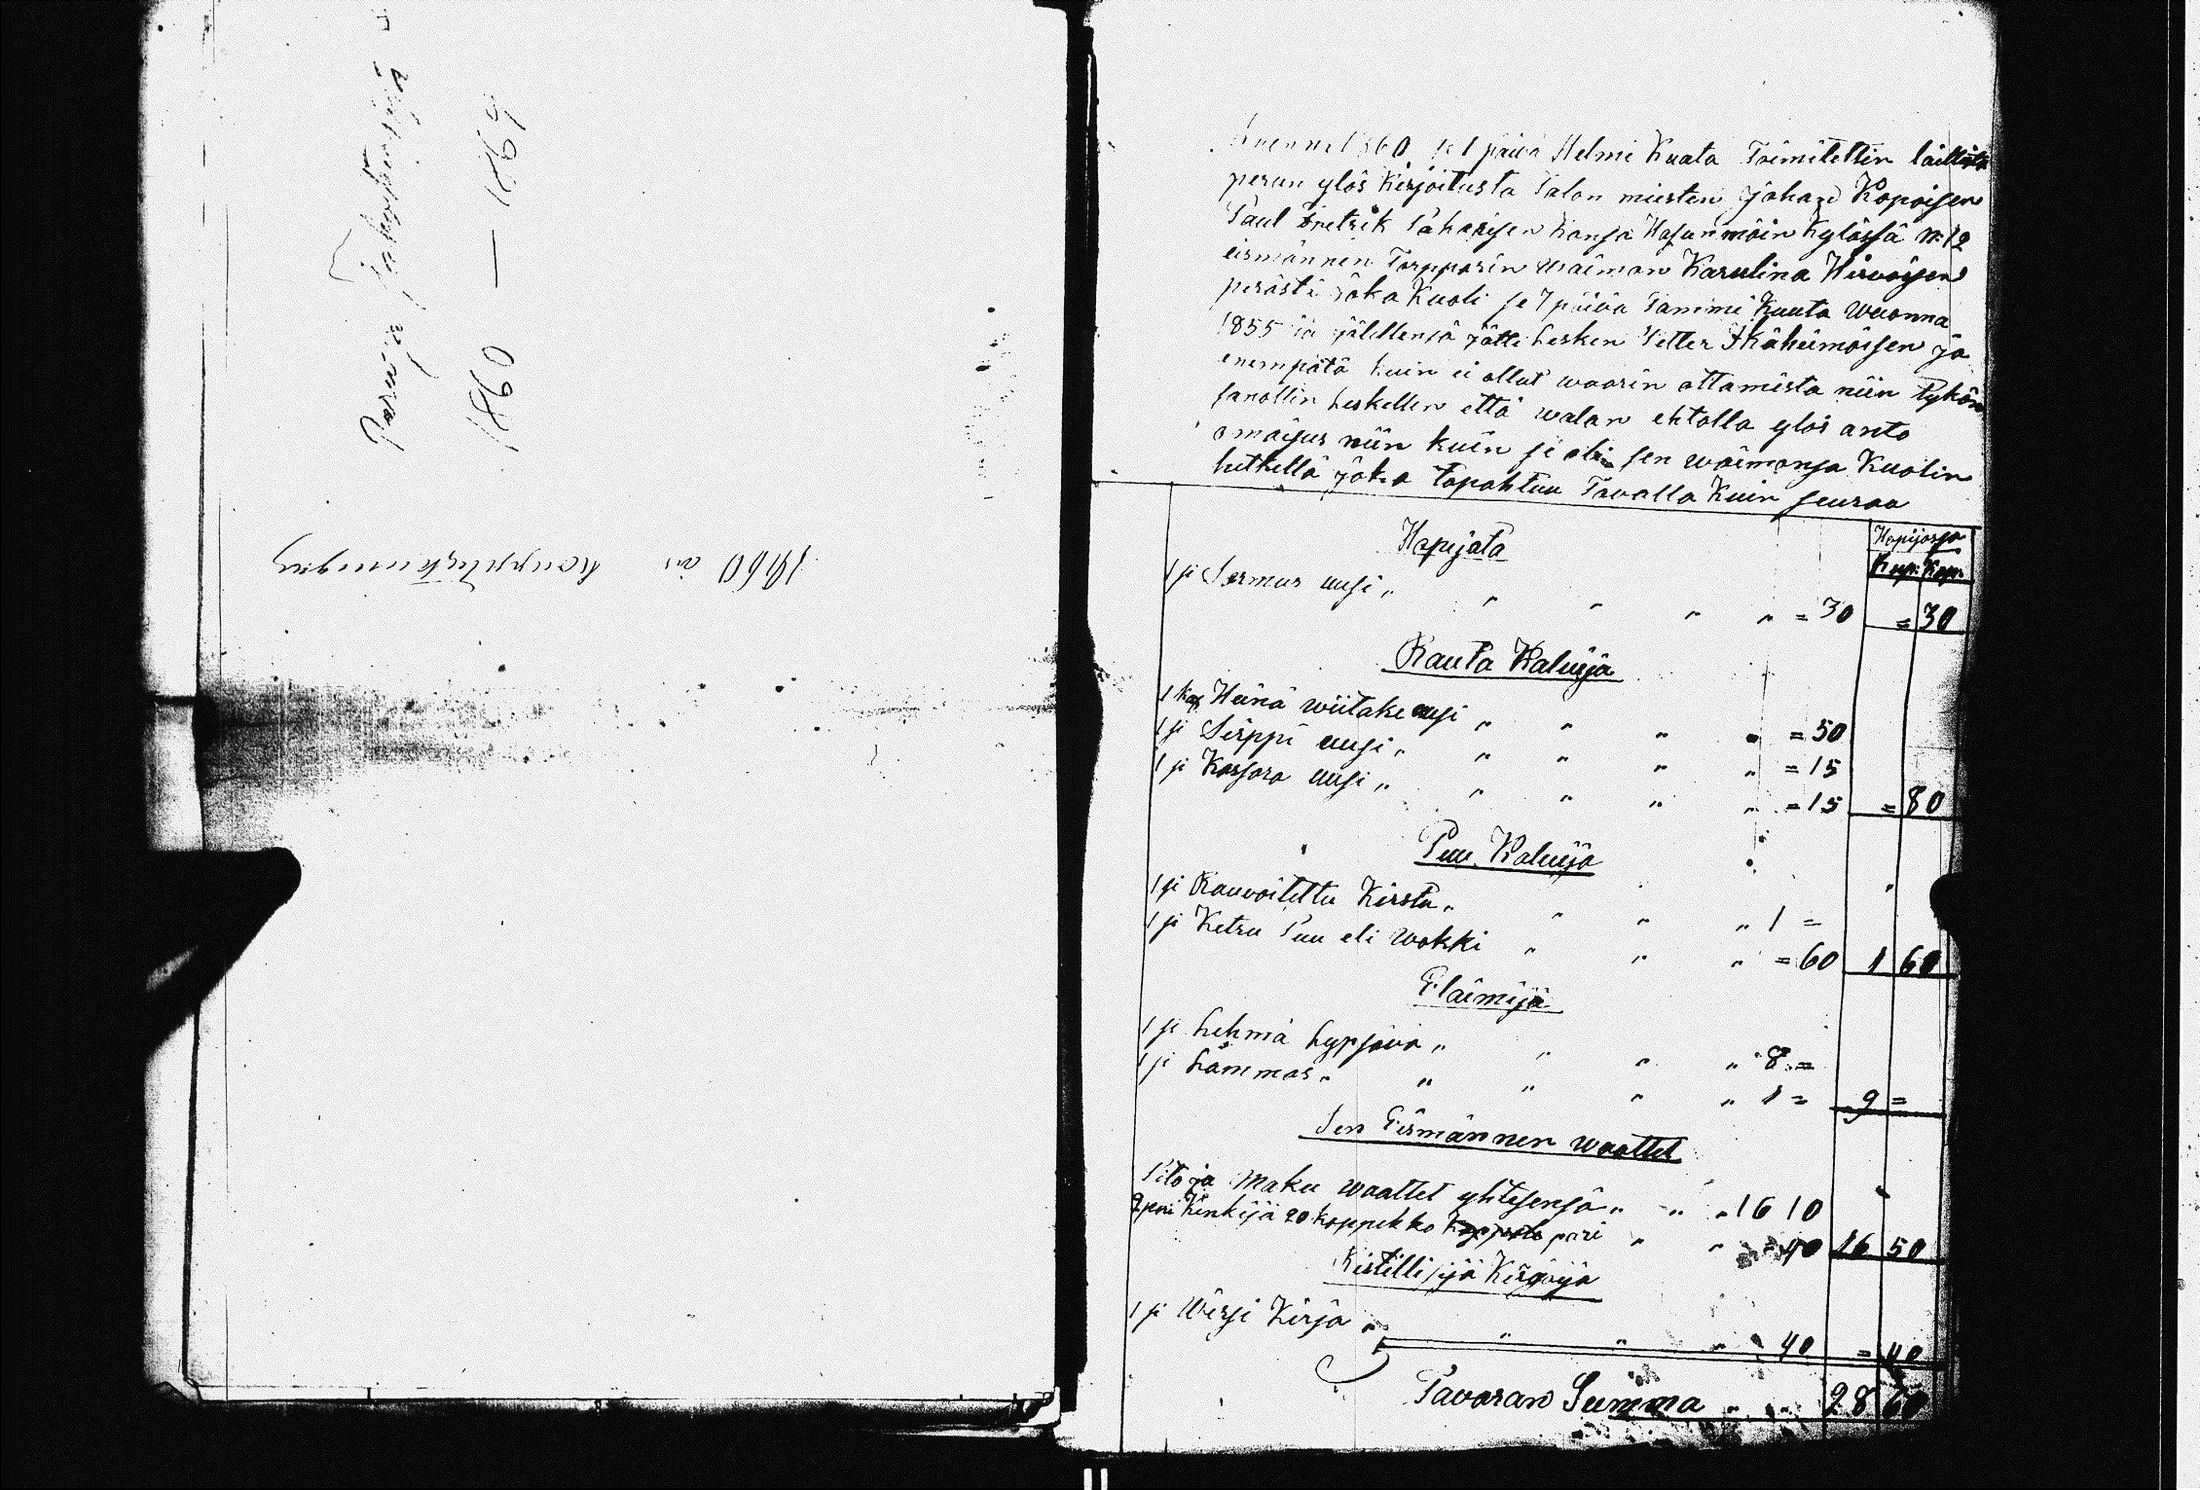 1860 — 1869
1860
1860 se 1 päivä Helmi Kuuta Toimitettin laillista
perun ylös Kirjoitusta Talon miesten Johan Kopoisen
Paul Kansa Kylässä No 12
eismännin Torpparin Waimon Karulina Hirvoisen
perästä joka Kuoli se 7 päivä Tammi Kuuta Wuonna
1855 ja jälillensä jätti Lesken Petter Ikäheimoisen ja
enempätä kuin ei ollut waarin ottamista niin
sanottin Leskellen että walan ehtolla ylös anto
omaisus niin kuin se oli sen waimonsa Kuolin
hetkellä joka Tapahtuu Tavalla Kuin seuraa
Hopijasa
Rup: Kop:
Hopijata
1 si Sormus uusi „ „ „ „ „ = 30 = 30
Rauta Kaluija
1 Heinä wiitake uusi „ „ „ „ = 50
1 si Sirppi uusi „ „ „ „ „ = 15
1 si Kassara uusi „ „ „ „ „ = 15 = 80
Puu Kaluija
1 si Rauvoitettu Kirstu „ „ „ „ 1 =
1 si Ketru Puu eli wokki „ „ „ = 60 1 60
Eläimijä
1 si Lehmä Lypsävä „ „ „ „ 8 =
1 si Lammas „ „ „ „ „ 1 = 9 =
Sen Eismännen waattet
Pito ja Maku waattet yhtesensä „ „ „ 16 10
2 pari Kenkijä 20 koppekko pari „ „ = 40 16 50
Kistillisijä Kirjoija
1 si Wirsi Kirja „ „ „ „ 40 = 40
Tavaran Summa „ „ 28 60